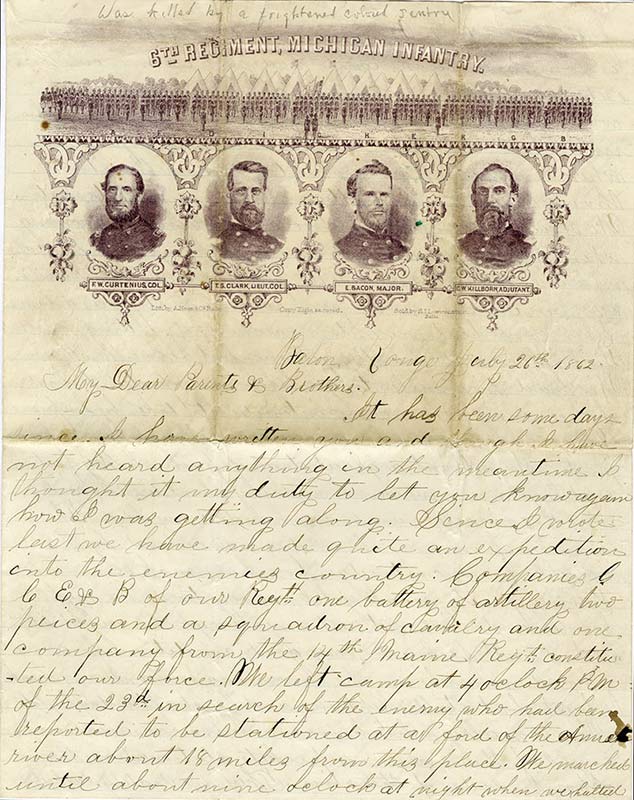 Was killed by a frightened colored sentry
6TH REGIMENT, MICHIGAN INFANTRY.
F.W. CURTENIUS, COL.
T.S. CLARK, LIEUT. COL.
E. BACON, MAJOR.
C.W. KILLBORN, ADJUTANT.
Lith. by A. Hoen & Co. Balto.
Copy Right secured.
Balto.
Baton Rouge July 26th 1862.
My Dear Parents & Brothers.
It has been some days
since I have written you and though I have
not heard anything in the meantime I
thought it my duty to let you know again
how I was getting along. Since I wrote
last we have made quite an expedition
into the enemies country. Companies G
C E & B of our Regtt. one battery of artillery two
peices and a squadron of cavalry and one
company from the 14th Maine Regtt. constitu
-ted our force. We left camp at 4 oclock P.M
of the 23d in search of the enemy who had been
reported to be stationed at a ford of the Amite
river about 18 miles from this place. We marched
until about nine oclock at night when we halted